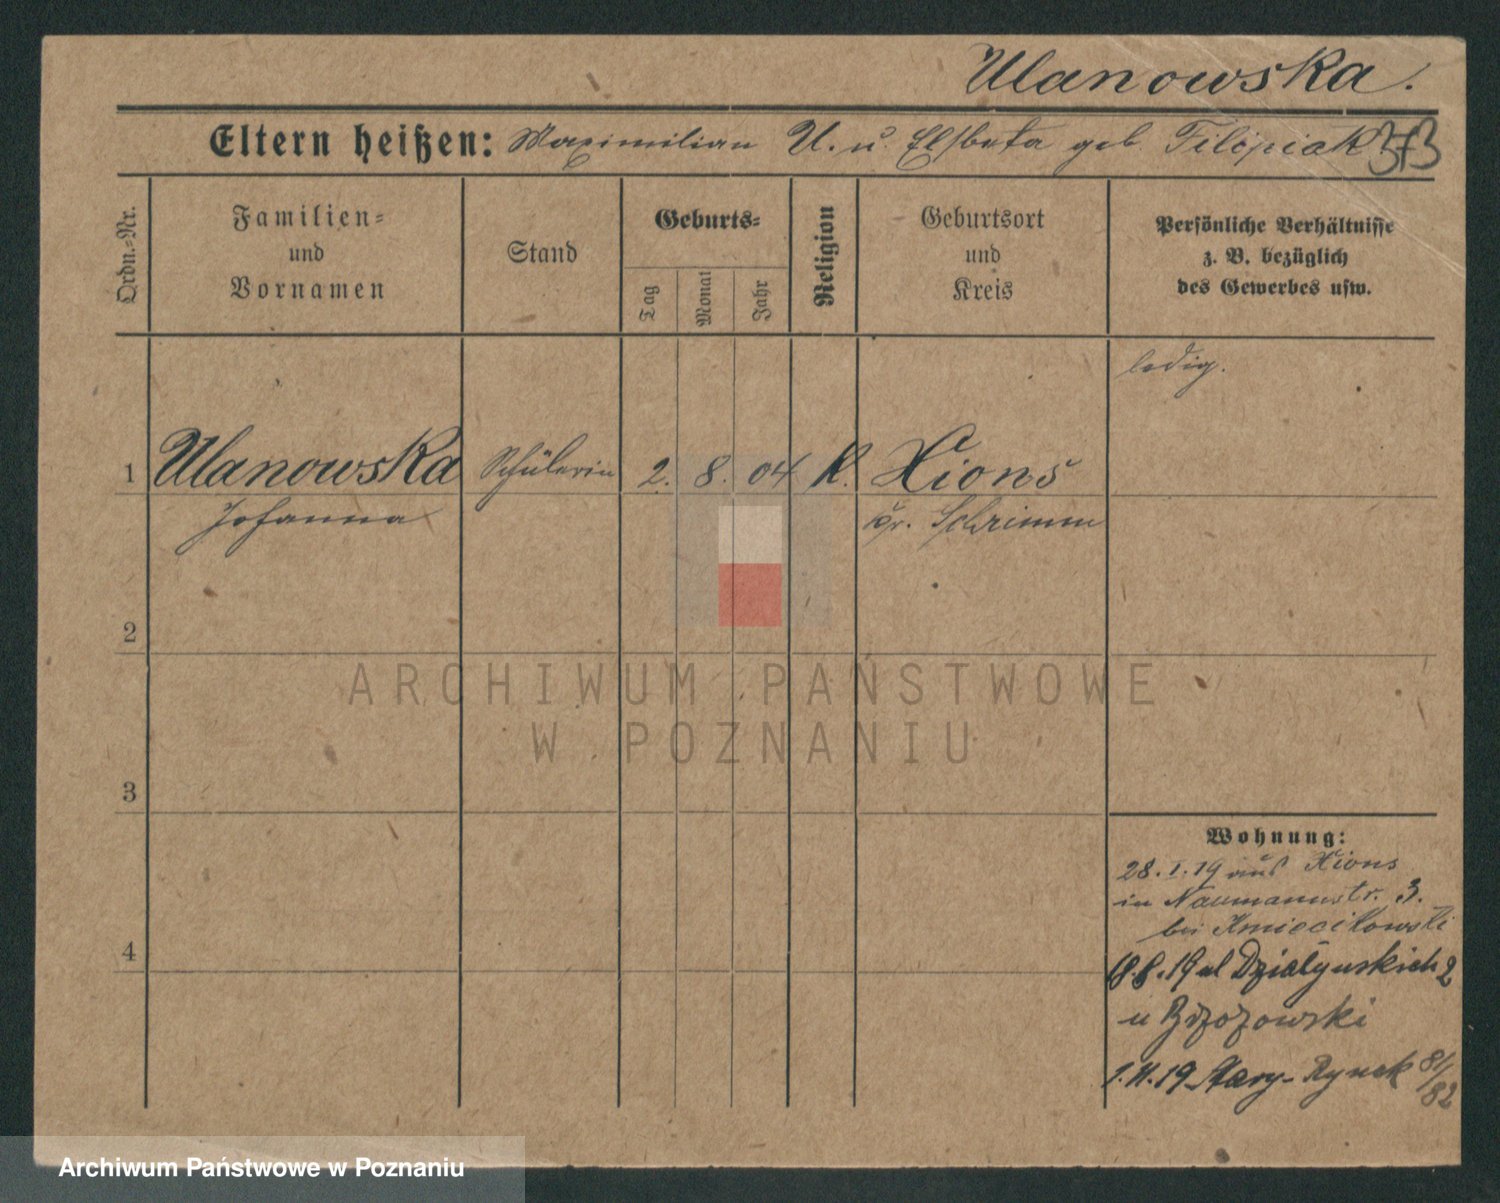 Ulanowska.
Eltern heißen: Maximilian U. u. Elsbeta geb. Filipiak 373
Ordn.-Nr.
Familien-
und
Vornamen
Stand
Geburts-
Tag
Monat
Jahr
Religion
Geburtsort
und
Kreis
Persönliche Verhältnisse
z. B. bezüglich
des Gewerbes usw.
ledig.
1 Ulanowska Schülerin 2. 8. 04 K. Xions
Johanna Kr. Schrimm
2
3
4
Wohnung:
28.1.19 aus Xions
in Naumannstr. 3.
bei Kmiecikowski
18.8.19 ul Działyńskich 2
u Brzozowski
1.11.19 Stary-Rynek 81/82
ARCHIWUM PAŃSTWOWE
W POZNANIU
Archiwum Państwowe w Poznaniu